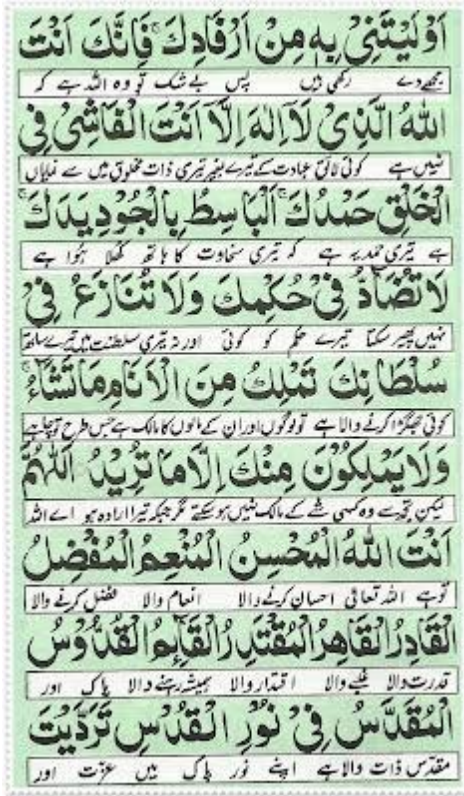 اَوْلَيْتَنِيْ بِهٖ مِنْ اَرْفَادِكَ فَاِنَّكَ اَنْتَ
مجھے دے رکھی ہیں پس بے شک تو وہ اللہ ہے کہ
اللهُ الَّذِيْ لَآ اِلٰهَ اِلَّآ اَنْتَ الْفَاشِيْ فِي
نہیں ہے کوئی لائق عبادت کے تیرے بغیر تیری ذات مخلوق میں سے نمایاں
الْخَلْقِ حَمْدُكَ الْبَاسِطُ بِالْجُوْدِ يَدَكَ
ہے تیری حمد یہ ہے کہ تیری سخاوت کا ہاتھ کھلا ہوا ہے
لَا تُضَآدُّ فِيْ حُكْمِكَ وَلَا تُنَازَعُ فِيْ
نہیں پھیر سکتا تیرے حکم کو کوئی اور نہ تیری سلطنت میں تیرے ساتھ
سُلْطَانِكَ تَمْلِكُ مِنَ الْاَنَامِ مَا تَشَآءُ
کوئی جھگڑا کرنے والا ہے تو لوگوں اور ان کے مالوں کا مالک ہے جس طرح تو چاہے
وَلَا يَمْلِكُوْنَ مِنْكَ اِلَّا مَا تُرِيْدُ اَللّٰهُمَّ
لیکن تجھ سے وہ کسی شے کے مالک نہیں ہو سکتے مگر جبکہ تیرا ارادہ ہو اے اللہ
اَنْتَ اللهُ الْمُحْسِنُ الْمُنْعِمُ الْمُفْضِلُ
تو ہے اللہ تعالیٰ احسان کرنے والا انعام والا فضل کرنے والا
الْقَادِرُ الْقَاهِرُ الْمُقْتَدِرُ الْقَآئِمُ الْقُدُّوْسُ
قدرت والا غلبے والا اقتدار والا ہمیشہ رہنے والا پاک اور
الْمُقَدَّسُ فِيْ نُوْرِ الْقُدْسِ تَرَدَّيْتَ
مقدس ذات والا ہے اپنے نور پاک میں عزت اور